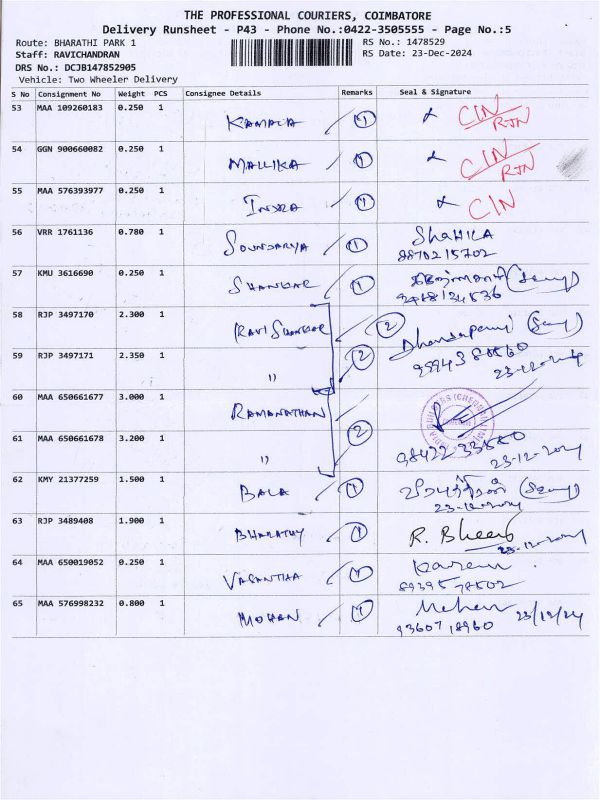 THE PROFESSIONAL COURIERS, COIMBATORE
Delivery Runsheet - P43 - Phone No.:0422-3505555 - Page No.:5
Route: BHARATHI PARK 1
RS No.: 1478529
Staff: RAVICHANDRAN
RS Date: 23-Dec-2024
DRS No.: DCJB147852905
Vehicle: Two Wheeler Delivery
S No Consignment No Weight PCS Consignee Details Remarks Seal & Signature
53 MAA 109260183 0.250 1 KAMALA 1 CIN/RTN
54 GGN 900660082 0.250 1 MALLIKA 1 CIN/RTN
55 MAA 576393977 0.250 1 INDRA 1 CIN
56 VRR 1761136 0.780 1 SOUNDARYA 1 ShaHILA
8870215702
57 KMU 3616690 0.250 1 SHANKAR 1
58 RJP 3497170 2.300 1 RAVI SHANKAR 2 Dhandapani
59 RJP 3497171 2.350 1 " 2
23-12-2024
60 MAA 650661677 3.000 1 RAMANATHAN
61 MAA 650661678 3.200 1 " 2 98422 33880
23-12-2024
62 KMY 21377259 1.500 1 BALA 1
23-12-2024
63 RJP 3489408 1.900 1 BHARATHY 1 R.
23-12-2024
64 MAA 650019052 0.250 1 VASANTHA 1
89395 78502
65 MAA 576998232 0.800 1 MOHAN 1 Mohan 23/12/24
93607 18960